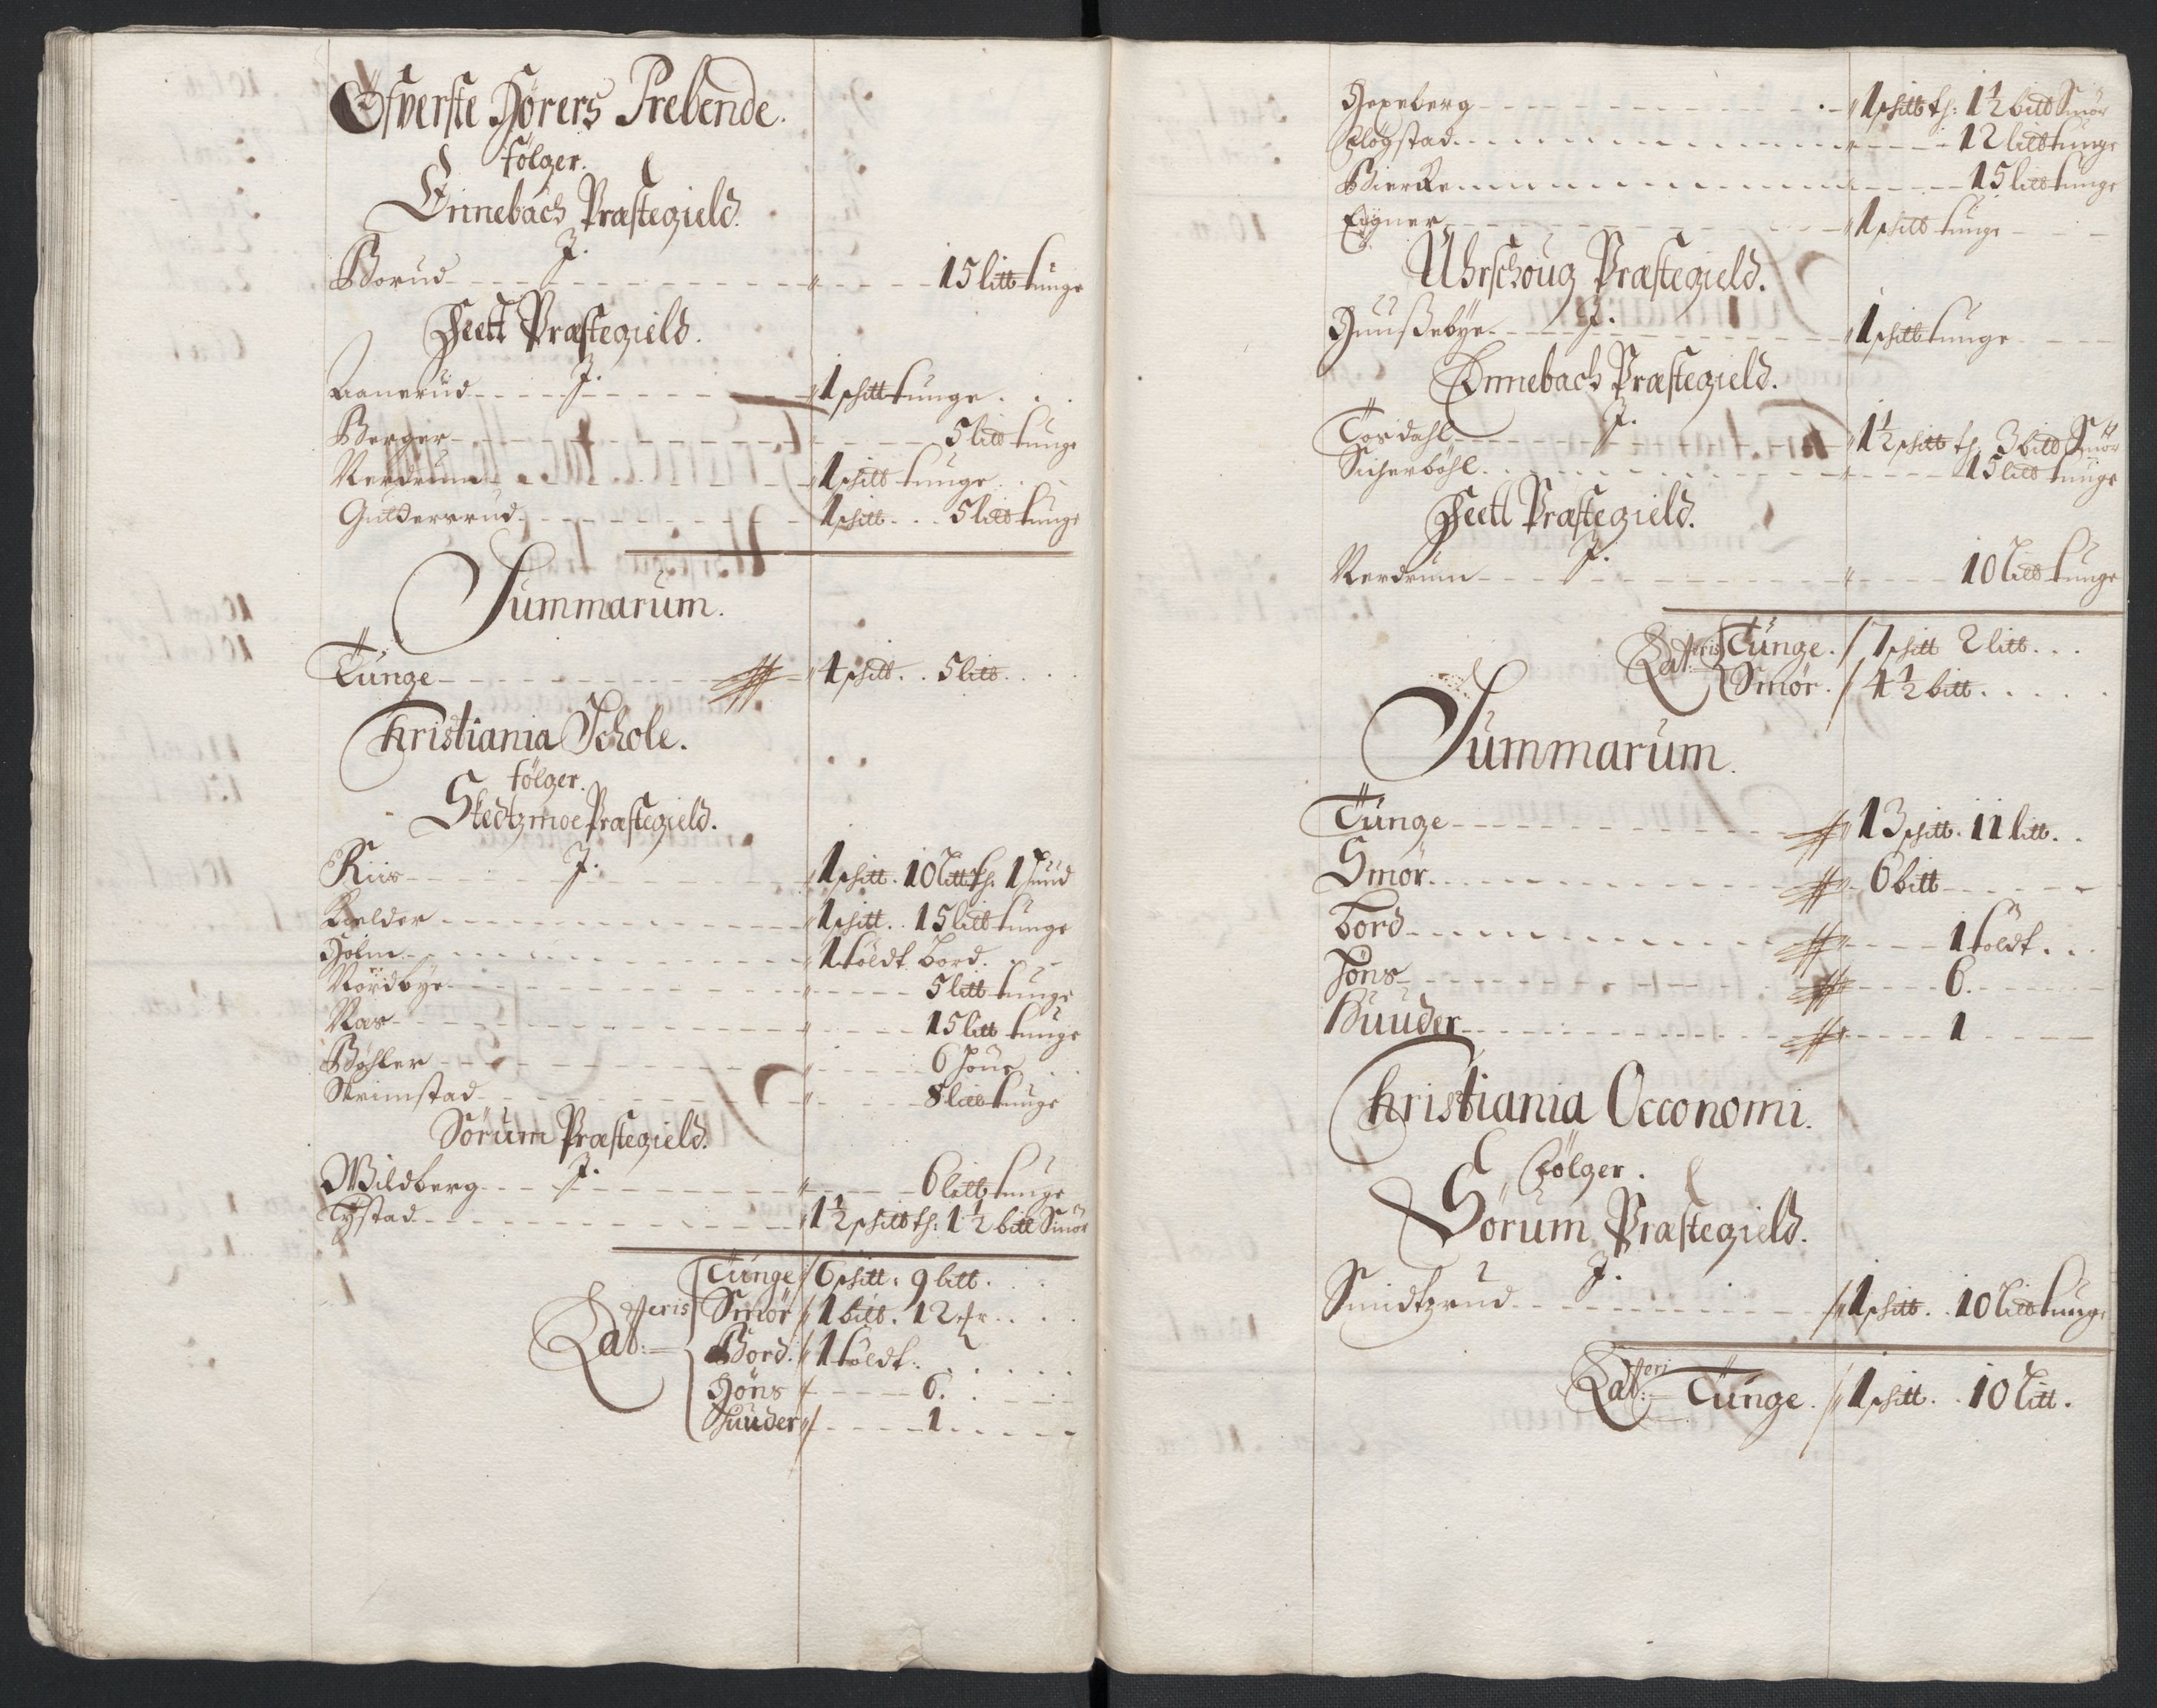 Öfverste Hörers Prebende.
fölger.
Ennebach Præstegield.
J.
Borud 15 litt tunge
Feett Præstegield.
J.
Aanerud 1 schitt tunge
Berger 5 litt tunge
Nerdrum 1 schitt tunge
Gutterrud 1 schitt 5 litt tunge
Summarum.
Tunge 4 schitt 5 litt
Kristiania Schole.
fölger.
Skedtzmoe Præstegield.
Riis J. 1 schitt 10 litt th: 1 huud
Kielder 1 schitt 15 litt tunge
Holm 1 töldt bord
Nordbye 5 litt tunge
Næs 15 litt tunge
Böhler 6 höns
Strimstad 8 litt tunge
Sörum Præstegield.
J.
Wildberg 6 litt tunge
Tystad 1½ schitt th: 1½ bitt Smör
Lateris
Tunge 6 schitt: 9 litt.
Smör 1 bitt. 12 mr.
Bord. 1 töldt.
Höns 6.
Huuder 1
Hexeberg 1 schitt th: 1½ bitt Smör
Flogstad 12 litt tunge
Bierke 15 litt tunge
Eÿgner 1 schitt tunge
Uhrschoug Præstegield.
J.
Huußebye 1 schitt tunge
Ennebach Præstegield.
J.
Tosdahl 1½ schitt th: 3 bitt Smör
Sicherböhl 15 litt tunge
Feett Præstegield.
J.
Nerdrum 10 litt tunge
Lateris
Tunge. 7 schitt 2 litt
Smör. 4½ bitt
Summarum.
Tunge 13 schitt. 11 litt.
Smör 6 bitt
Bord 1 töldt.
Höns 6.
Huuder 1
Kristiania Occonomi.
Fölger.
Sörum Præstegield.
J.
Smidtzrud 1 schitt. 10 litt tunge
Lateri Tunge. 1 schitt. 10 litt.